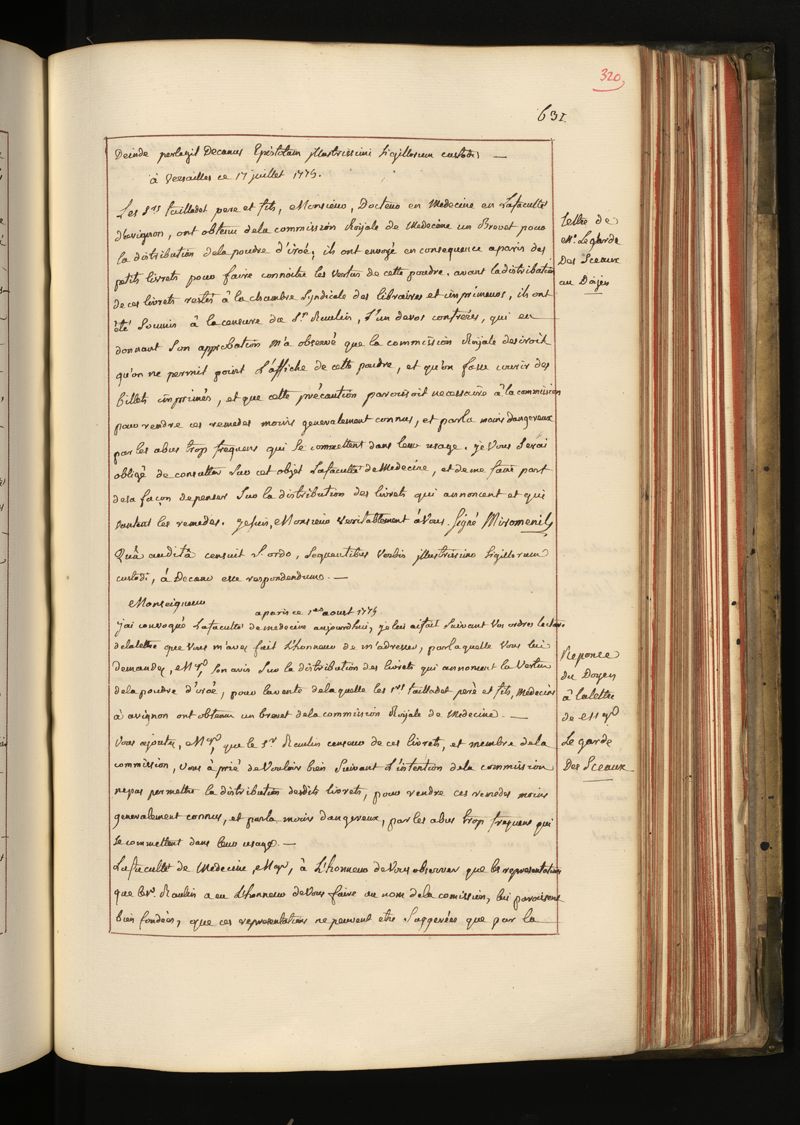 320
631
Deinde perlegit Decanus Epistolam illustrissimi sigillorum custodis —
à Versailles ce 17 juillet 1775.
Les Srs tailladet pere et fils, Monsieur, Docteurs en Medecine en la faculté
d'avignon, ont obtenu de la commission Roijale de Medecine un Brevet pour
la distribution de la poudre d'iroé; ils ont envoyé en consequence a paris des
petits livrets pour faire connoitre les vertus de cette poudre. avant la distribution
de ces livrets restés à la chambre Syndicale des libraires et imprimeurs, ils ont
été soumis à la censure de Sr. Raulin, l'un de vos confreres, qui en
donnant son approbation m'a observé que la commission Roijale desiroit
qu'on ne permit point l'affiche de cette poudre, et qu'on fasse courir des
billets imprimés, et que cette précaution paroissoit necessaire à la commission
pour rendre ces remedes moins generalement connus, et par la moins dangereux
par les abus trop frequens qui se commettent dans leur usage. je vous serai
obligé de consulter sur cet objet la faculté de Medecine, et de me faire part
de sa façon de penser sur la distribution des livrets qui annoncent et qui
vantent les remedes. je suis, Monsieur veritablement à vous. signé Miromenil
Quâ auditâ censuit S. ordo, sequentibus verbis illustrissimo sigillorum
custodi, à Decano esse respondendum. —
Monseigneur
a paris ce 1er aoust 1775
j'ai convoqué la faculté de medecine aujourdhui, je lui ai fait suivant vos ordres lecture
de la lettre que vous m'avez fait l'honneur de m'adresser, par laquelle vous lui
demandez, Mgr, son avis sur la distribution des livrets qui annoncent la vertu
de la poudre d'iroé, pour la vente de laquelle les srs tailladet peré et fils, Médecins
à avignon ont obtenu un brevet de la commission Roijale de Medecine. —
vous ajoutez, Mgr, que le Sr Raulin censeur de ces livrets, et membre de la
commission, vous à prié de vouloir bien suivant l'intention de la commission
ne pas permettre la distribution desdits livrets, pour rendre ces remedes moins
generalement connus, et par la moins dangereux, par les abus trop frequens qui
se commettent dans leur usage. —
La faculté de Medecine Mgr, à l'honneur de vous observer que les representations
que le sr. Raulin a eu l'honneur de vous faire au nom de la comission, lui paroissent
bien fondées, que ces representations ne peuvent etre suggerées que par la
lettre de
Mr. Le garde
Des Sceaux
au Doijen
Reponce
du Doyen
à la lettre
de Mgr
Le garde
Des Sceaux